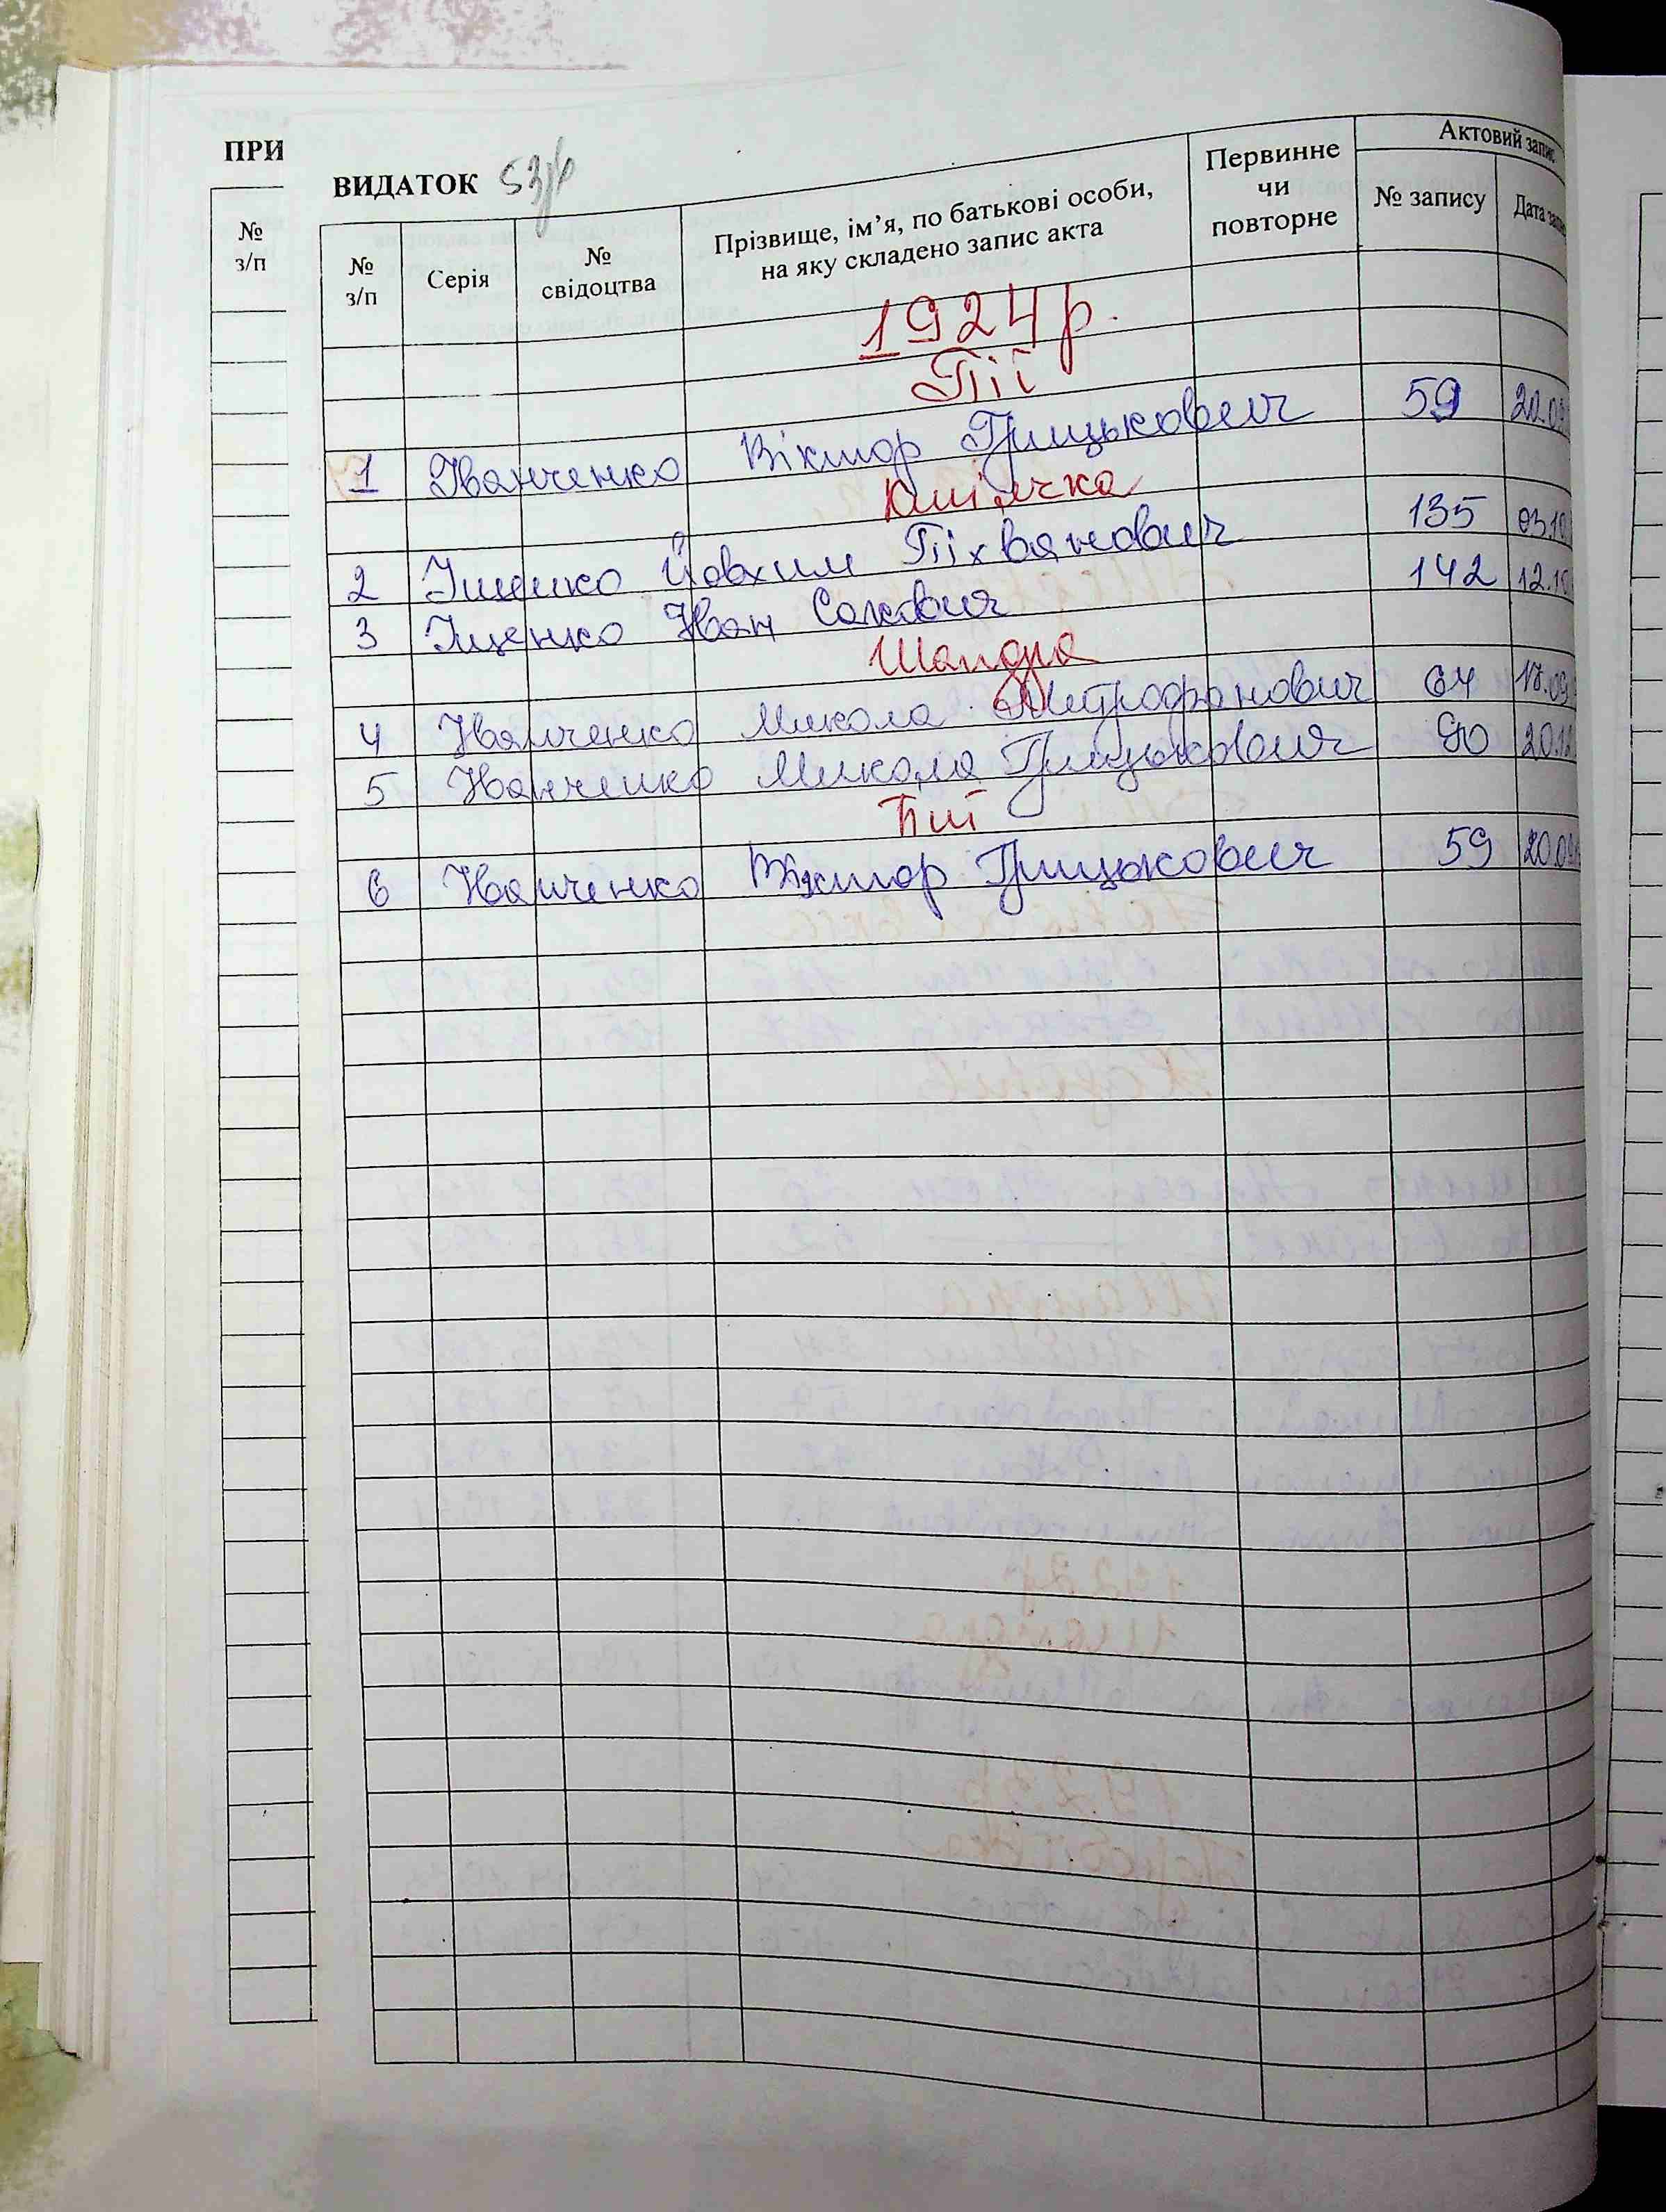 ПРИ
ВИДАТОК 53зв
№ з/п
№ з/п
Серія
№ свідоцтва
Прізвище, ім’я, по батькові особи, на яку складено запис акта
Первинне чи повторне
Актовий запис
№ запису
Дата
1924 р.
Пії
1 Іванченко Віктор Грицькович 59 20.09
Юшічка
2 Іщенко Йовхим 135 03.10
3 Іщенко Іван Савович 142 12.10
Шандра
4 Іванченко Микола Митрофанович 64 17.09
5 Іванченко Микола Грицькович 90 20.12
Пії
6 Іванченко Віктор Грицькович 59 20.09